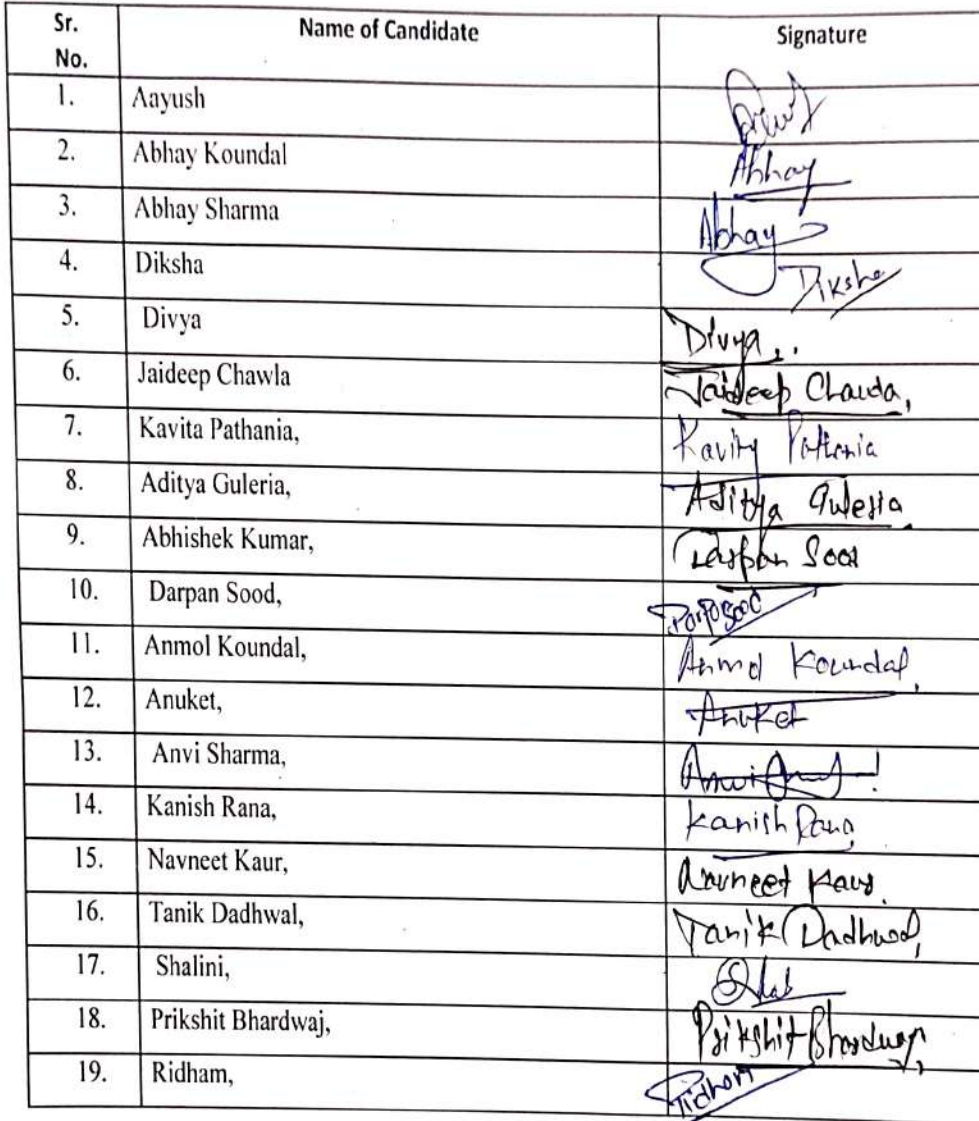 Sr. No. Name of Candidate Signature
1. Aayush
2. Abhay Koundal Abhay
3. Abhay Sharma Abhay
4. Diksha Diksha
5. Divya Divya
6. Jaideep Chawla Jaideep Chawla,
7. Kavita Pathania, Kavita Pathania
8. Aditya Guleria, Aditya Guleria
9. Abhishek Kumar, Darpan Sood
10. Darpan Sood,
11. Anmol Koundal, Anmol Koundal,
12. Anuket, Anuket
13. Anvi Sharma, Anvi
14. Kanish Rana, Kanish Rana
15. Navneet Kaur, Navneet Kaur
16. Tanik Dadhwal, Tanik Dadhwal,
17. Shalini,
18. Prikshit Bhardwaj, Prikshit Bhardwaj,
19. Ridham, Ridham